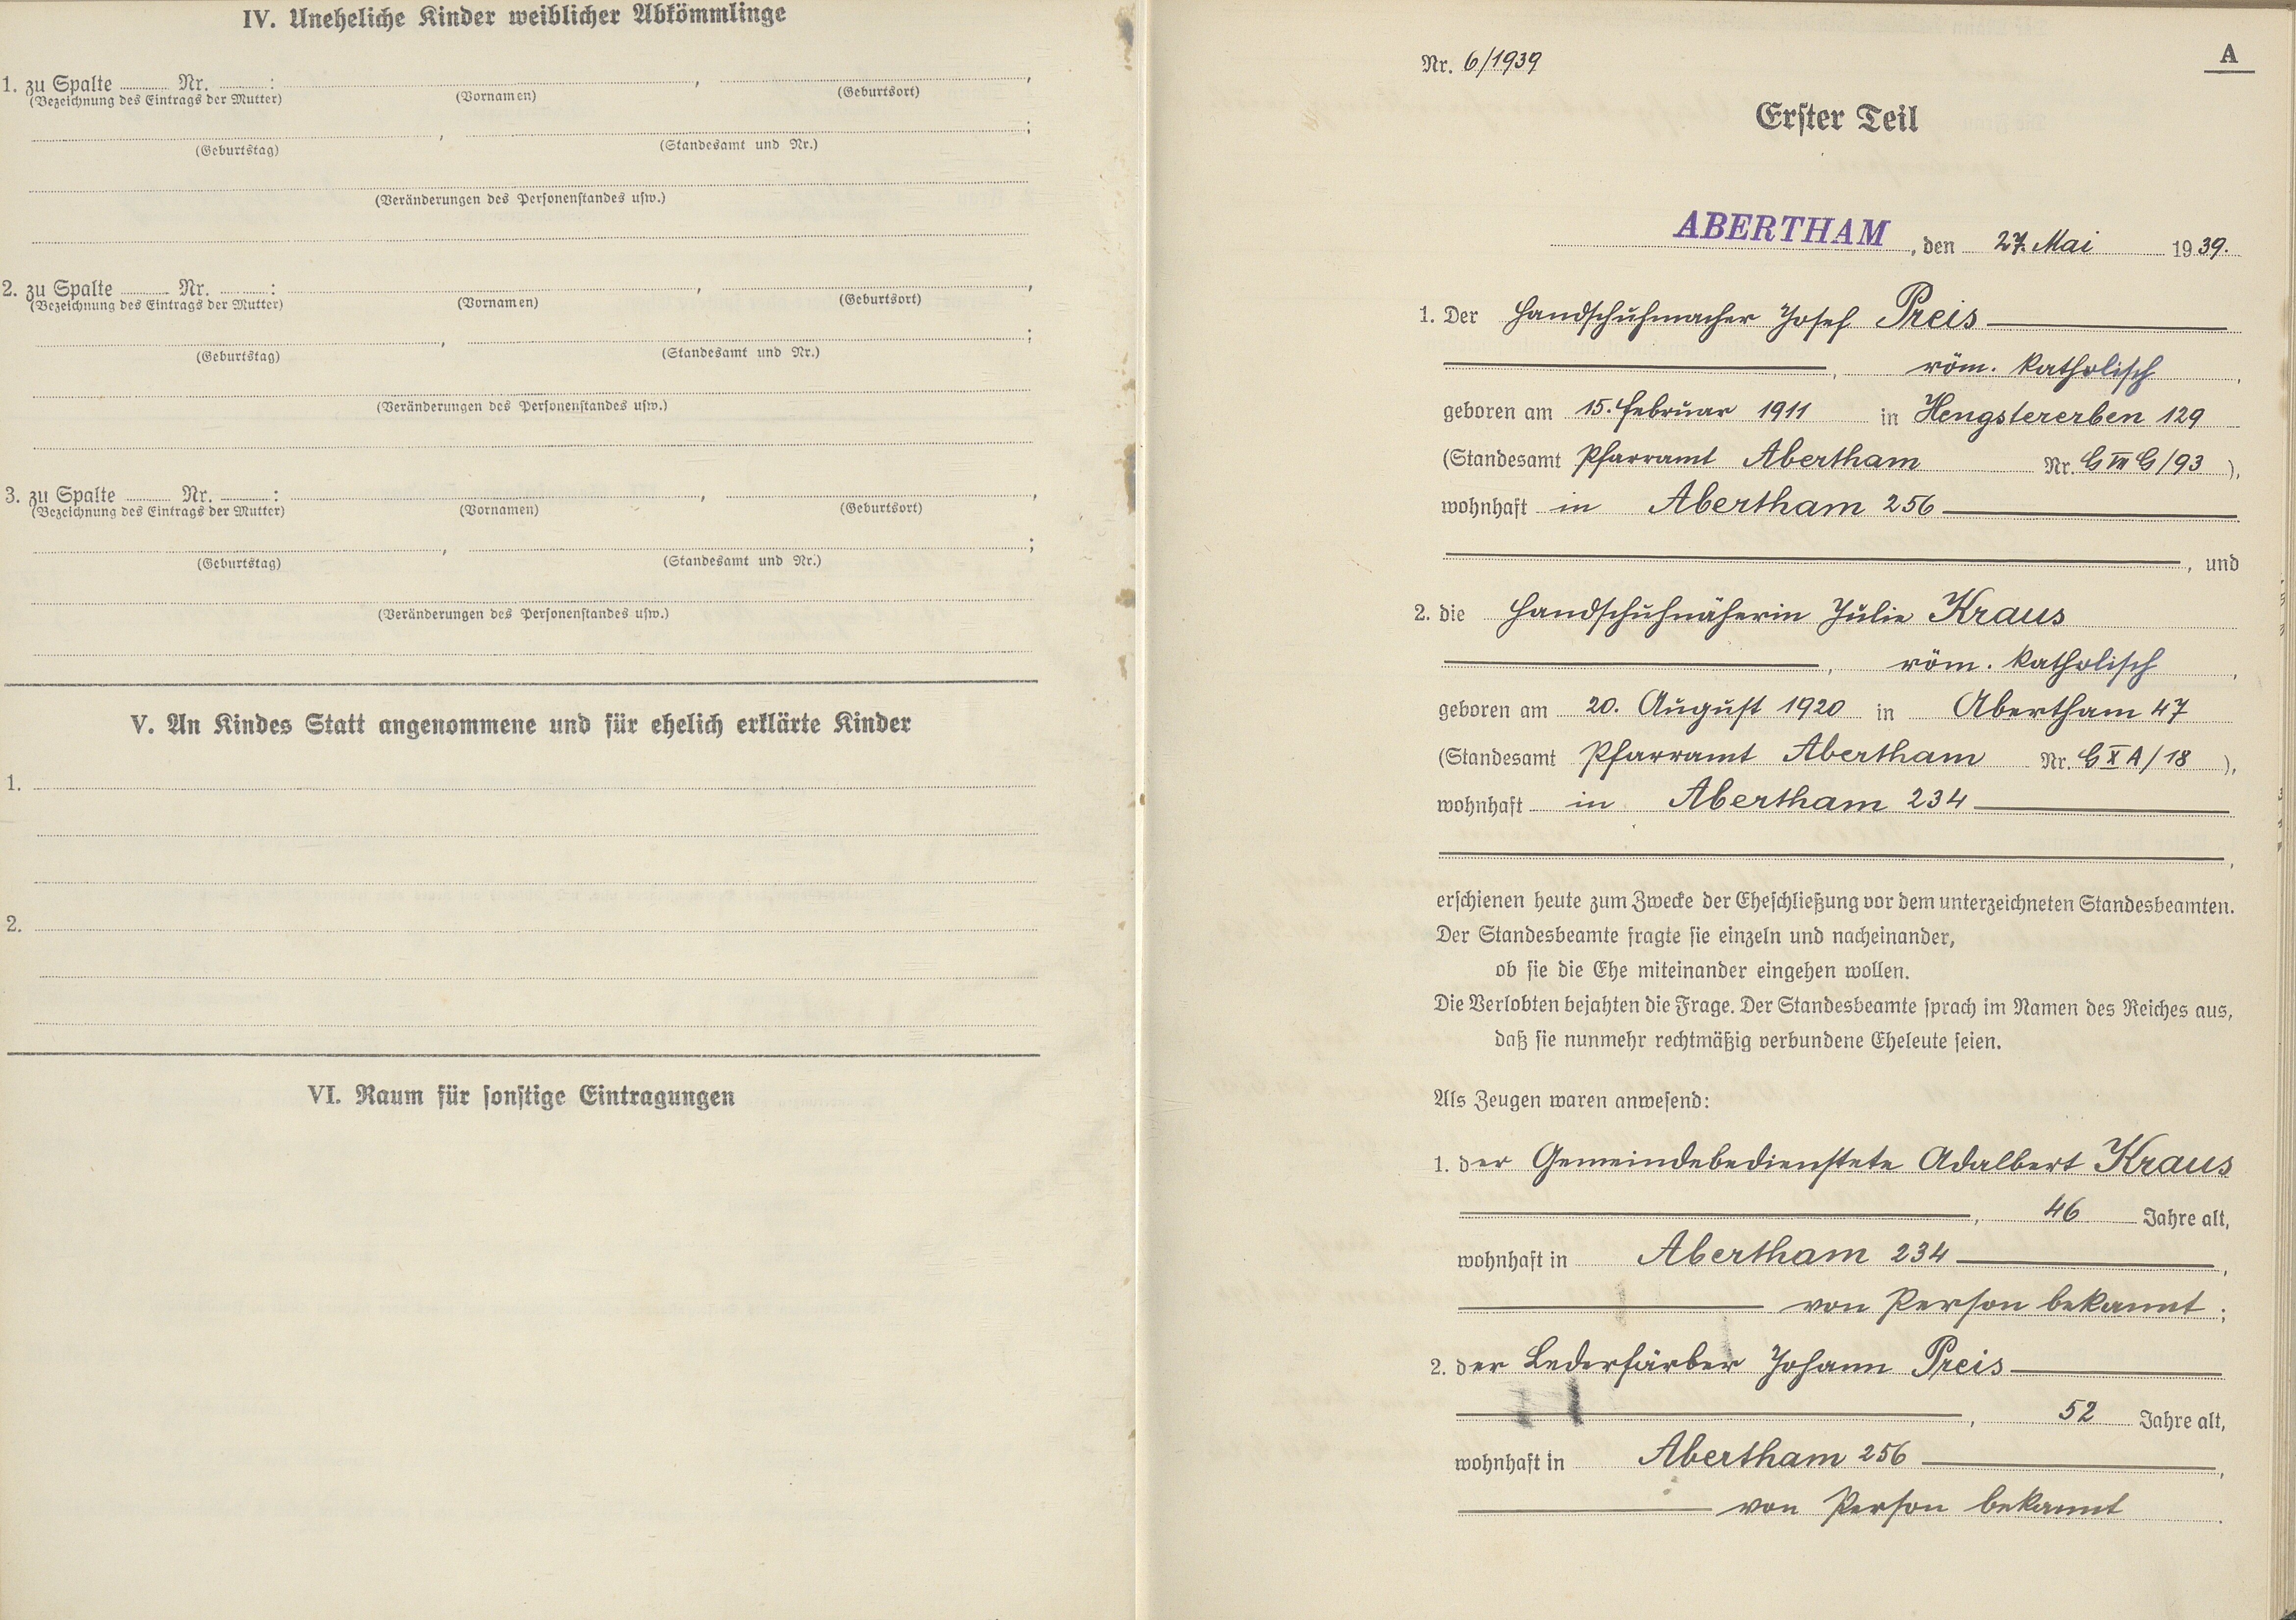 IV. Uneheliche Kinder weiblicher Abkömmlinge
1. zu Spalte ........ Nr. ........: ........, ........,
(Bezeichnung des Eintrags der Mutter) (Vornamen) (Geburtsort)
........, ........;
(Geburtstag) (Standesamt und Nr.)
(Veränderungen des Personenstandes usw.)
2. zu Spalte ........ Nr. ........: ........, ........,
(Bezeichnung des Eintrags der Mutter) (Vornamen) (Geburtsort)
........, ........;
(Geburtstag) (Standesamt und Nr.)
(Veränderungen des Personenstandes usw.)
3. zu Spalte ........ Nr. ........: ........, ........,
(Bezeichnung des Eintrags der Mutter) (Vornamen) (Geburtsort)
........, ........;
(Geburtstag) (Standesamt und Nr.)
(Veränderungen des Personenstandes usw.)
V. An Kindes Statt angenommene und für ehelich erklärte Kinder
1.
2.
VI. Raum für sonstige Eintragungen
A
Nr. 6/1939
Erster Teil
ABERTHAM, den 27. Mai 1939.
1. Der Handschuhmacher Josef Preis
, röm. katholisch,
geboren am 15. Februar 1911 in Hengstererben 129
(Standesamt Pfarramt Abertham Nr. G III G/93),
wohnhaft in Abertham 256
, und
2. die Handschuhnäherin Julie Kraus
, röm. katholisch,
geboren am 20. August 1920 in Abertham 47
(Standesamt Pfarramt Abertham Nr. G X A/18),
wohnhaft in Abertham 234
,
erschienen heute zum Zwecke der Eheschließung vor dem unterzeichneten Standesbeamten.
Der Standesbeamte fragte sie einzeln und nacheinander,
ob sie die Ehe miteinander eingehen wollen.
Die Verlobten bejahten die Frage. Der Standesbeamte sprach im Namen des Reiches aus,
daß sie nunmehr rechtmäßig verbundene Eheleute seien.
Als Zeugen waren anwesend:
1. der Gemeindebedienstete Adalbert Kraus
, 46 Jahre alt,
wohnhaft in Abertham 234,
von Person bekannt;
2. der Lederfärber Johann Preis
, 52 Jahre alt,
wohnhaft in Abertham 256,
von Person bekannt.